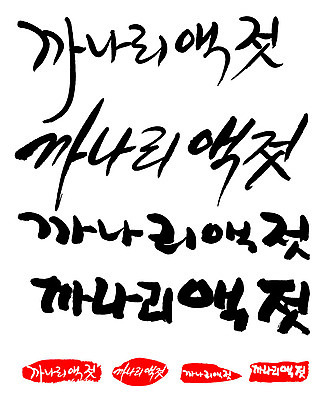 까나리액젓
까나리액젓
까나리액젓
까나리액젓
까나리액젓 까나리액젓 까나리액젓 까나리액젓